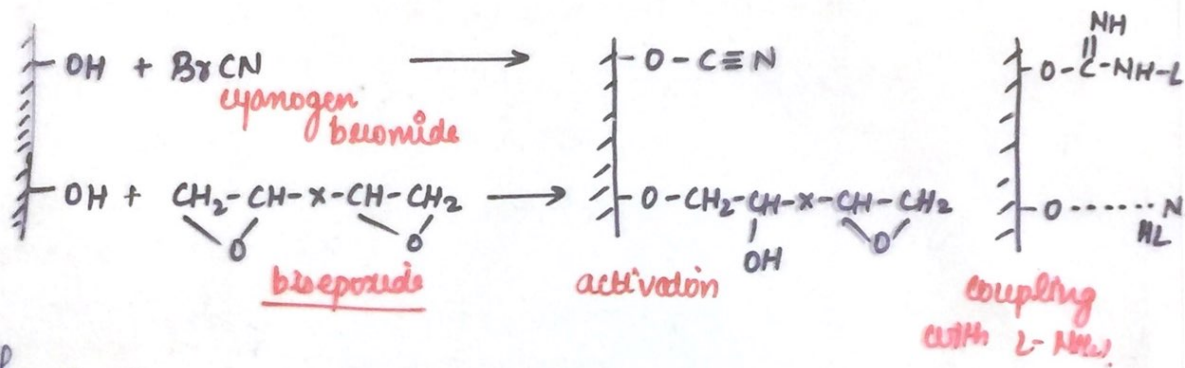 NH
OH + BrCN → O-C≡N O-C-NH-L
cyanogen bromide
OH + CH2-CH-x-CH-CH2 → O-CH2-CH-x-CH-CH2 O......N
O O OH O HL
bisepoxide activation coupling
with L-